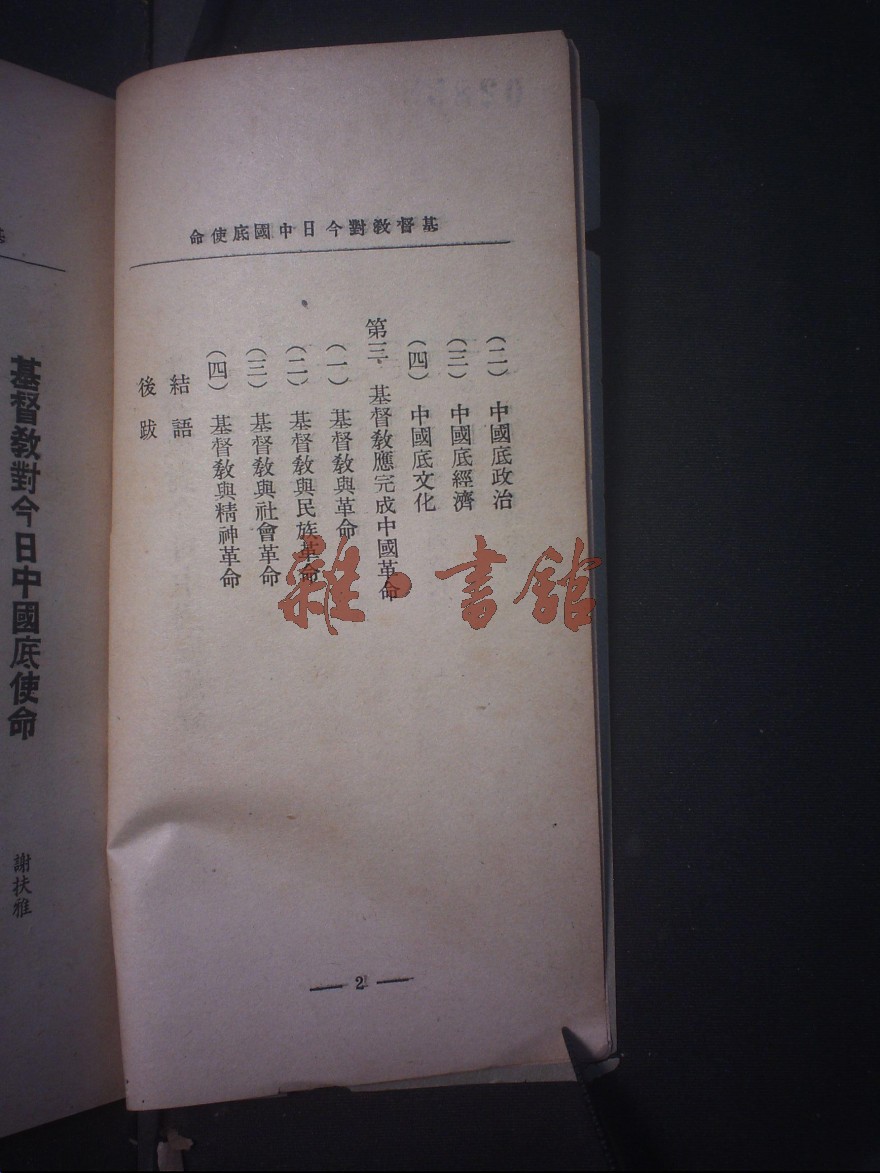 基督教對今日中國底使命
（二） 中國底政治
（三） 中國底經濟
（四） 中國底文化
第三、基督教應完成中國革命
（一） 基督教與革命
（二） 基督教與民族革命
（三） 基督教與社會革命
（四） 基督教與精神革命
結語
後跋
— 2 —
基督教對今日中國底使命
謝扶雅
雜·書館